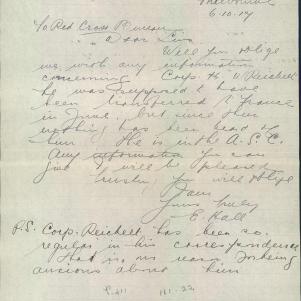 6.10.17
To Red Cross Bureau
Dear Sirs
Will you oblige
me with any information
concerning Corp. H. Reichelt
he was supposed to have
been transferred to France
in June, but since then
nothing has been heard of
him. He is in the A.S.C.
Any information you can
give I will be pleased
Trusting you will oblige
I am
Yours truly
E Hall
P.S. Corp. Reichelt has been so
regular in his correspondence
that is my reason for being
anxious about him